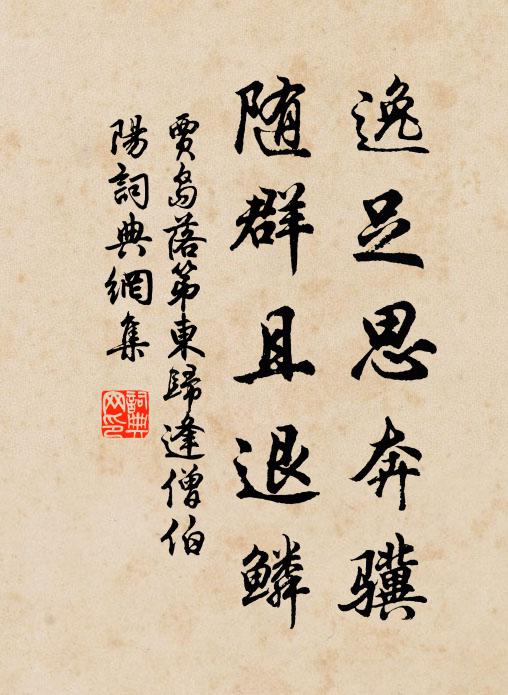 逸足思奔驥
随群且退鱗
賈島落第東歸逢僧伯
陽詞典網集
詞典
网印